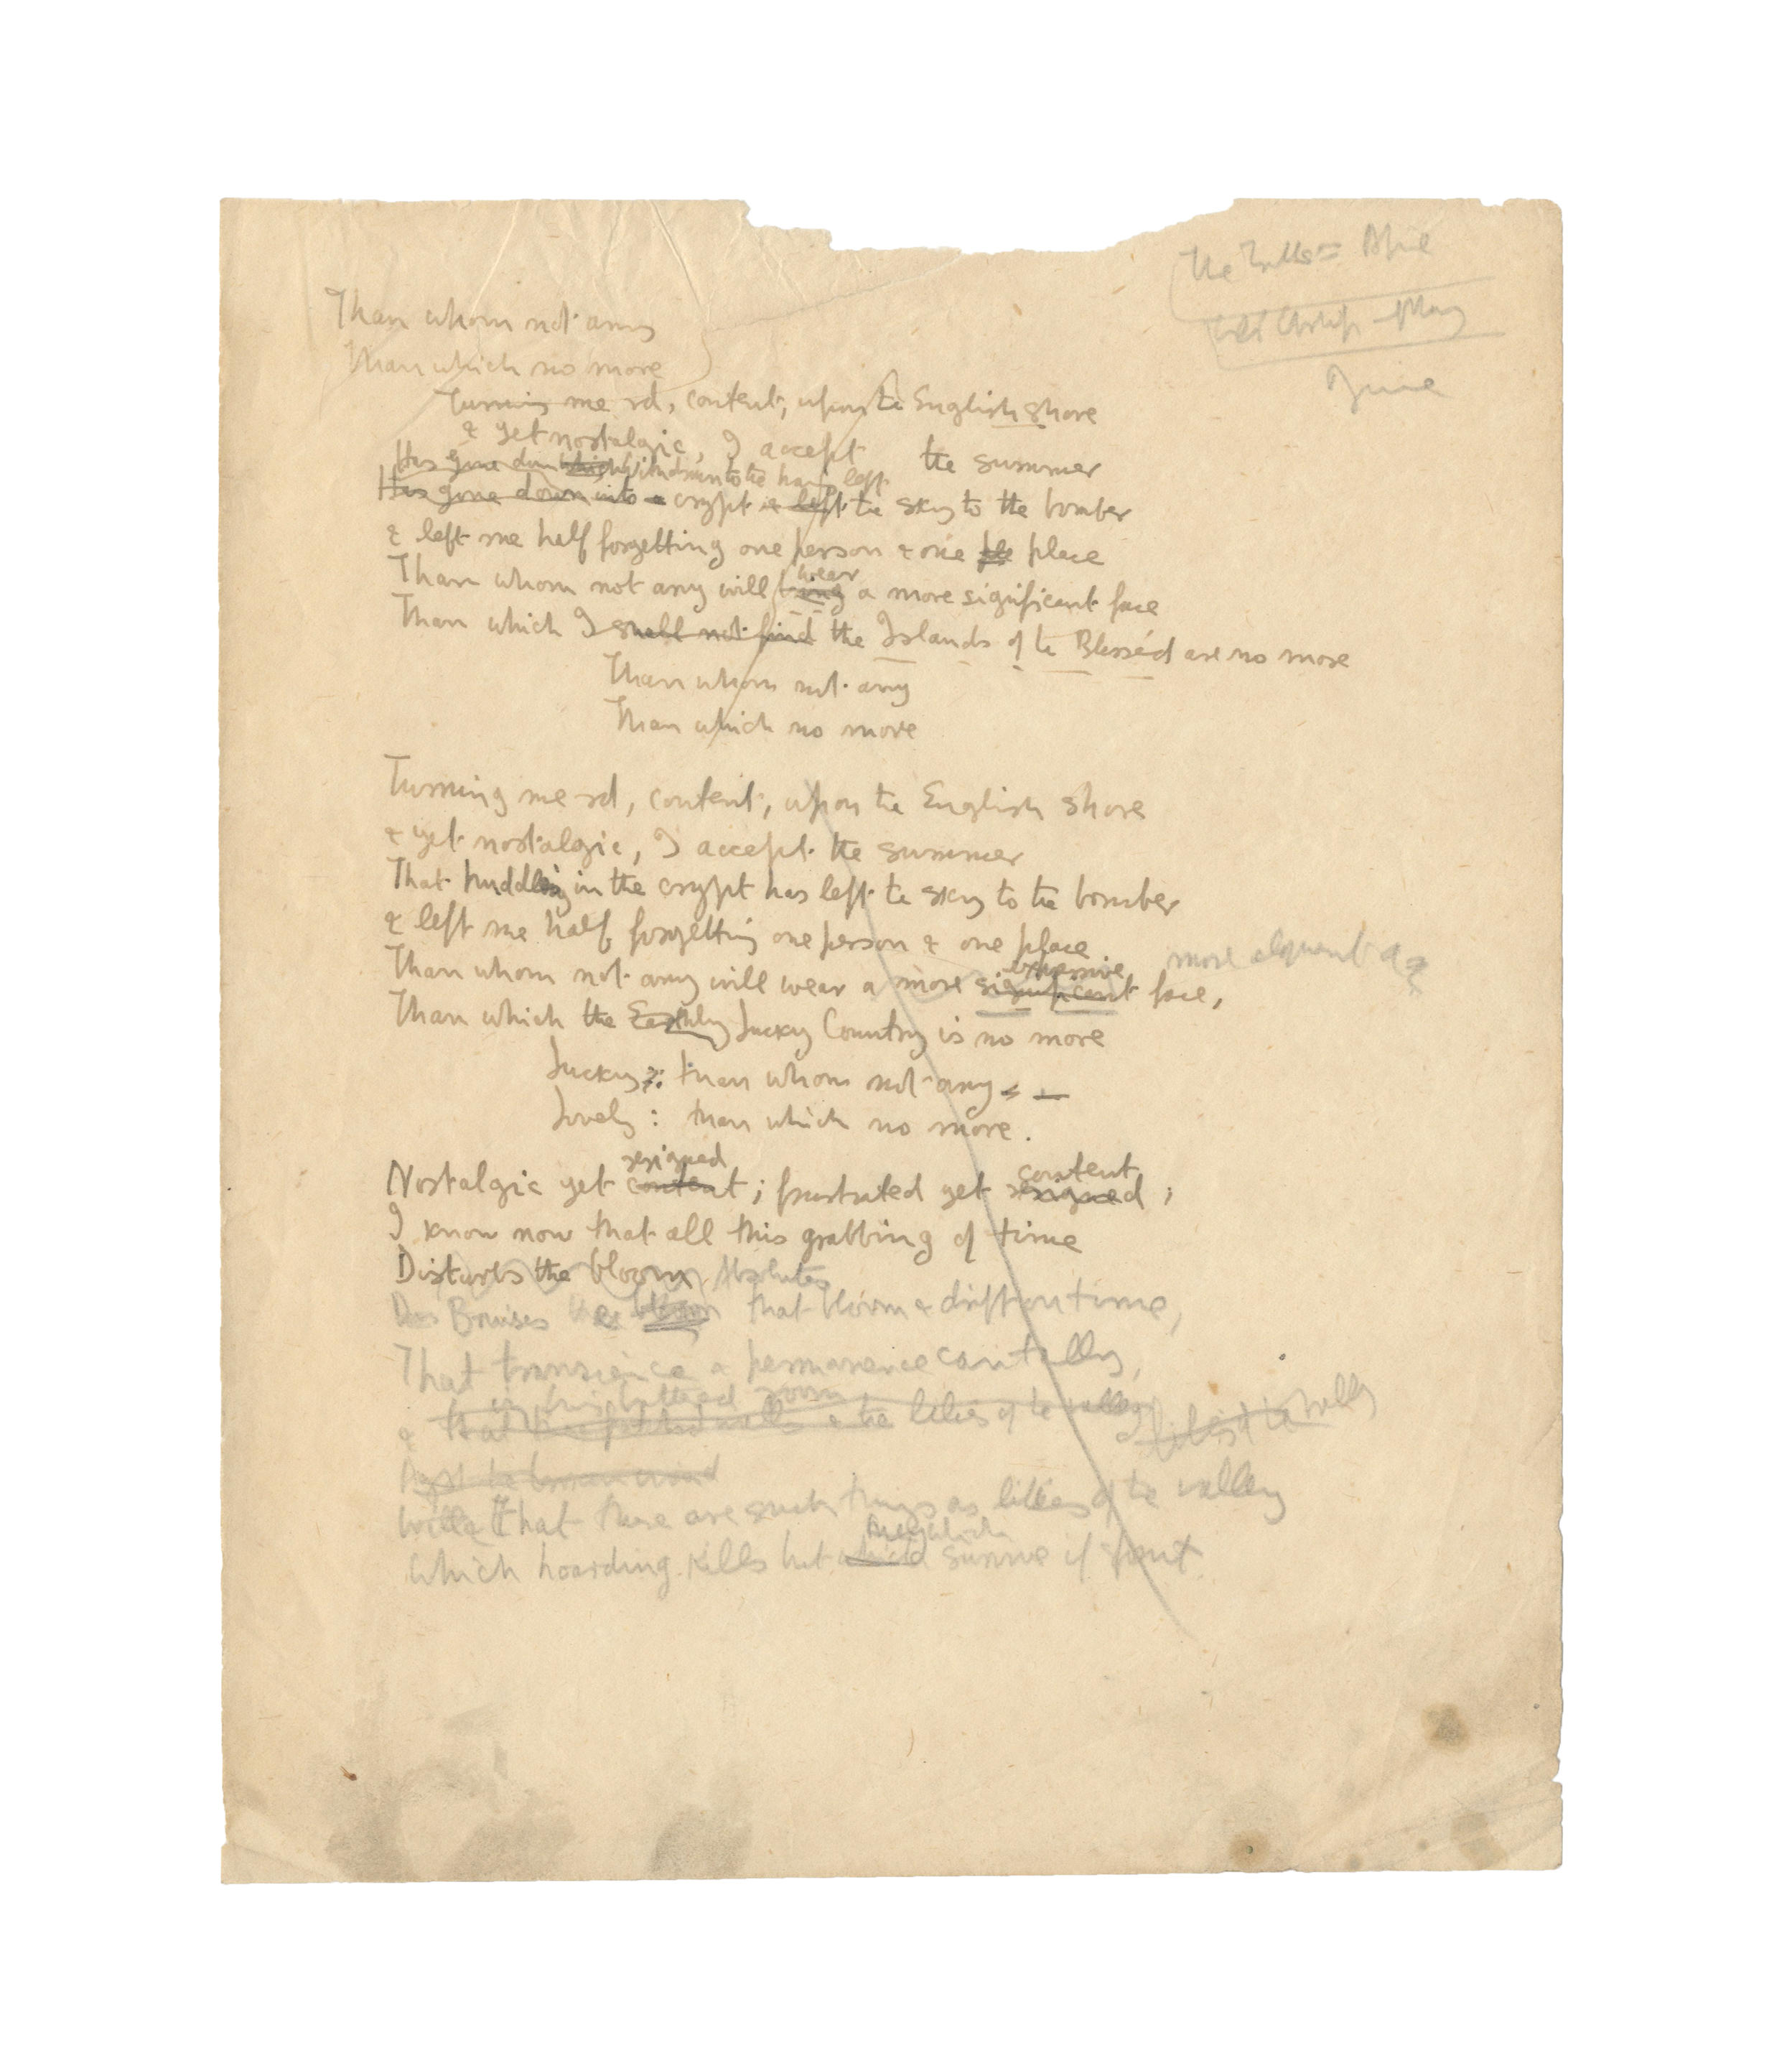 The
May
June
Than whom not any
Than which no more
Turning me rd, content, upon te English shore
& yet nostalgic, I accept the summer
Has gone down which into the hath left
Has gone down into a crypt & left te sky to the bomber
& left me half forgetting one person & one ple place
wear
Than whom not any will bring a more significant face
Than which I shall not find the Islands of te Blesséd are no more
Than whom not any
Than which no more
Turning me rd, content, upon te English shore
& yet nostalgic, I accept the summer
That huddling in the crypt has left te sky to te bomber
& left me half forgetting one person & one place
expressive more eloquent
Than whom not any will wear a more significant face,
Than which the Earthly Lucky Country is no more
Lucky: than whom not any –
Lovely: than which no more.
resigned content
Nostalgic yet content; frustrated yet resigned;
I know now that all this grabbing of time
Disturbs the bloom Absolutes
Bruises the bloom that bloom & drift on time,
That transience a permanence can tally,
in this room
& that the walls & the lilies of te valley
lilies of te valley
that there are such things as lilies of te valley
they which
Which hoarding kills but which survive if spent.